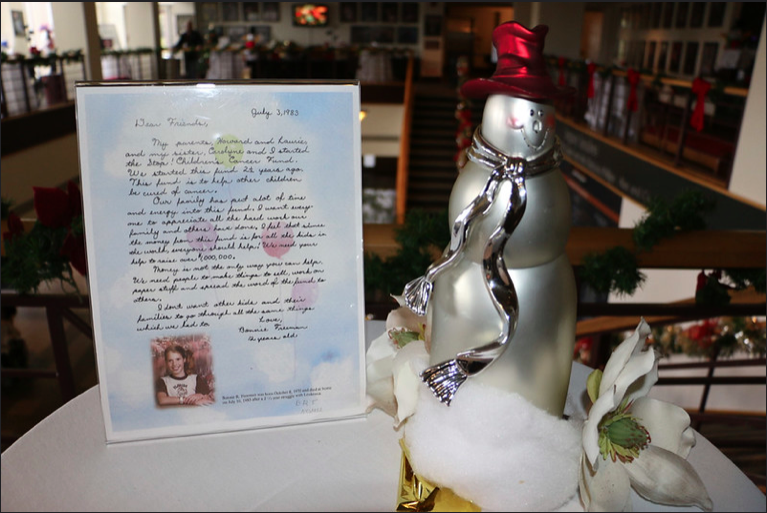 July 3, 1983
Dear Friends,
My parents, Howard and Laurie,
and my sister, Carolyne and I started
the Stop! Children's Cancer Fund.
We started this fund 2½ years ago.
This fund is to help other children
be cured of cancer.
Our family has put alot of time
and energy into this fund. I want every-
one to appreciate all the hard work our
family and others have done. I feel that since
the money from this fund is for all the kids in
the world, everyone should help! We need your
help to raise over $1,000,000.
Money is not the only way you can help.
We need people to make things to sell, work on
paper stuff and spread the word of the fund to
others.
I don't want other kids and their
families to go through all the same things
which we had to.
Love,
Bonnie Freeman
12 years old
Bonnie R. Freeman was born October 8, 1970 and died at home
on July 31, 1983 after a struggle with Leukemia.